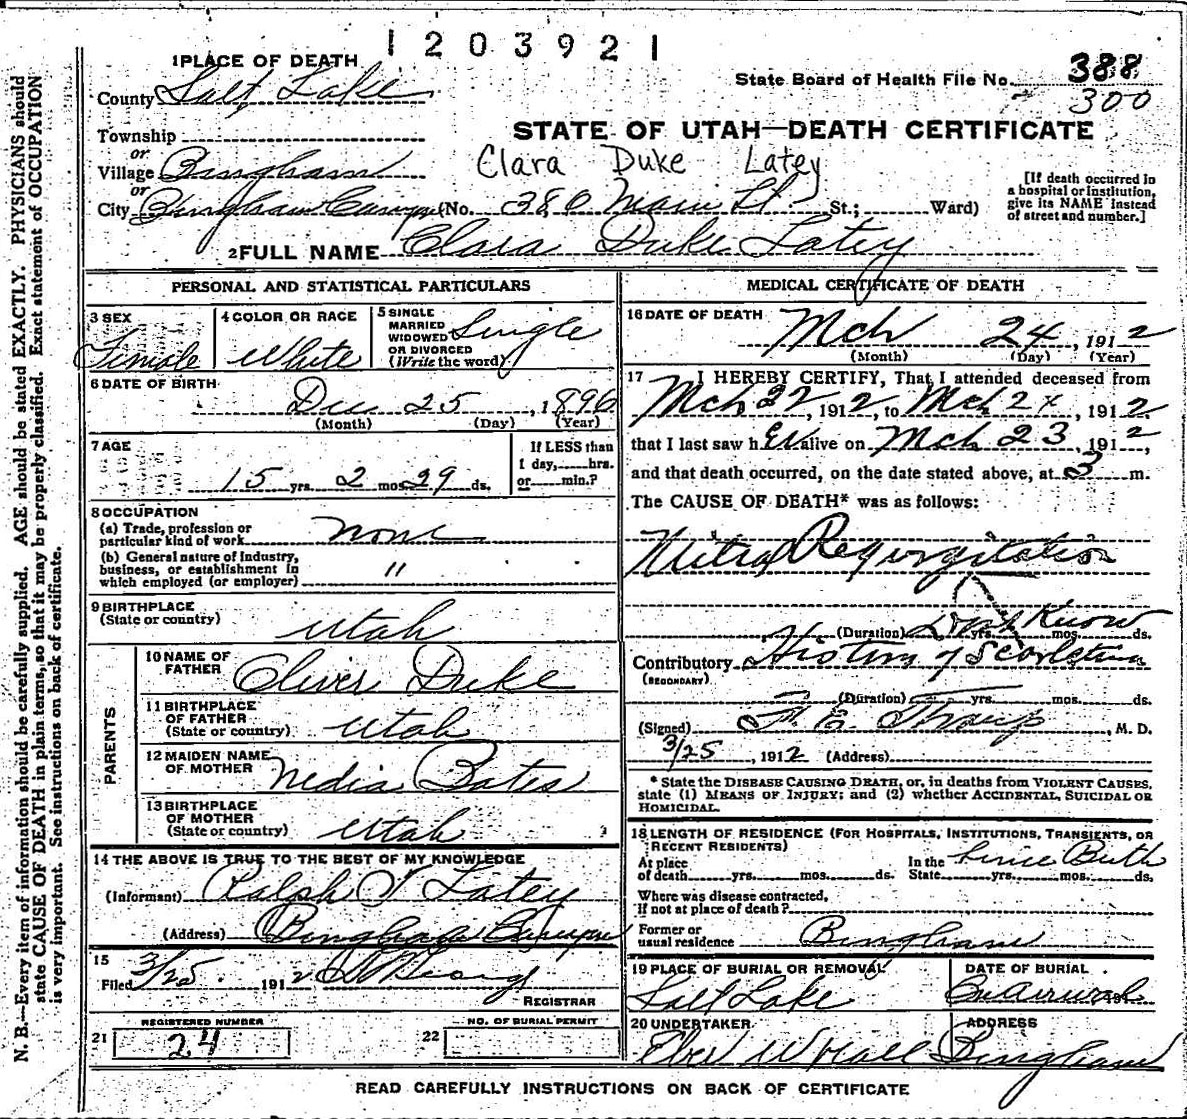 1203921
1 PLACE OF DEATH
State Board of Health File No. 388
300
County Salt Lake
STATE OF UTAH—DEATH CERTIFICATE
Township
or
Village Bingham
Clara Duke Latey
or
City Bingham Canyon (No. 380 Main St. St.; Ward)
[If death occurred in
a hospital or institution,
give its NAME instead
of street and number.]
2 FULL NAME Clara Duke Latey
PERSONAL AND STATISTICAL PARTICULARS
3 SEX
Female
4 COLOR OR RACE
White
5 SINGLE
MARRIED
WIDOWED
OR DIVORCED
(Write the word) Single
6 DATE OF BIRTH
Dec 25, 1896
(Month) (Day) (Year)
7 AGE
15 yrs. 2 mos. 29 ds.
If LESS than
1 day, hrs.
or min.?
8 OCCUPATION
(a) Trade, profession or
particular kind of work none
(b) General nature of industry,
business, or establishment in
which employed (or employer) "
9 BIRTHPLACE
(State or country) Utah
PARENTS
10 NAME OF
FATHER Oliver Duke
11 BIRTHPLACE
OF FATHER
(State or country) Utah
12 MAIDEN NAME
OF MOTHER Nedia Bates
13 BIRTHPLACE
OF MOTHER
(State or country) Utah
14 THE ABOVE IS TRUE TO THE BEST OF MY KNOWLEDGE
(Informant) Ralph T Latey
(Address) Bingham Canyon
15
Filed 3/25 1912
REGISTRAR
21 REGISTERED NUMBER
24
22 NO. OF BURIAL PERMIT
MEDICAL CERTIFICATE OF DEATH
16 DATE OF DEATH
Mch 24, 1912
(Month) (Day) (Year)
17 I HEREBY CERTIFY, That I attended deceased from
Mch 22, 1912, to Mch 24, 1912
that I last saw h er alive on Mch 23, 1912,
and that death occurred, on the date stated above, at 3 m.
The CAUSE OF DEATH* was as follows:
Mitral Regurgitation
(Duration) Dont Know yrs. mos. ds.
Contributory History of Scarletina
(SECONDARY)
(Duration) yrs. mos. ds.
(Signed) F. E. Straup, M. D.
3/25, 1912 (Address)
* State the DISEASE CAUSING DEATH, or, in deaths from VIOLENT CAUSES,
state (1) MEANS OF INJURY; and (2) whether ACCIDENTAL, SUICIDAL OR
HOMICIDAL.
18 LENGTH OF RESIDENCE (FOR HOSPITALS, INSTITUTIONS, TRANSIENTS, OR
RECENT RESIDENTS)
At place
of death yrs. mos. ds.
In the
State yrs. mos. ds. Since Birth
Where was disease contracted,
if not at place of death?
Former or
usual residence Bingham
19 PLACE OF BURIAL OR REMOVAL
Salt Lake
DATE OF BURIAL
On arrival 191
20 UNDERTAKER
Eber W Hall
ADDRESS
Bingham
READ CAREFULLY INSTRUCTIONS ON BACK OF CERTIFICATE
N. B.—Every item of information should be carefully supplied. AGE should be stated EXACTLY. PHYSICIANS should
state CAUSE OF DEATH in plain terms, so that it may be properly classified. Exact statement of OCCUPATION
is very important. See instructions on back of certificate.